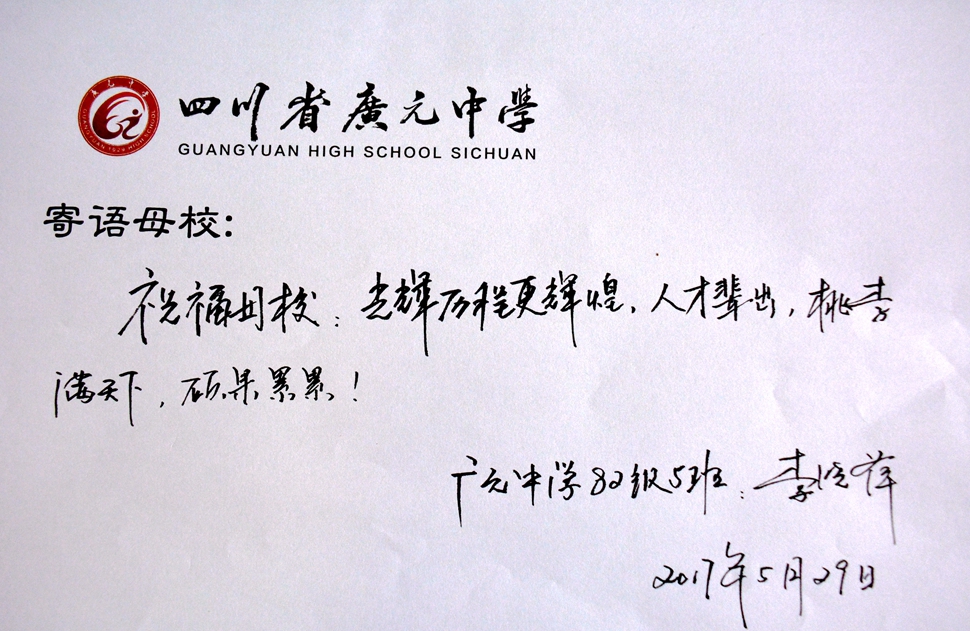 四川省廣元中學
GUANGYUAN HIGH SCHOOL SICHUAN
寄语母校:
祝福母校：光辉历程更辉煌，人才辈出，桃李
满天下，硕果累累！
广元中学82级5班：李
2017年5月29日